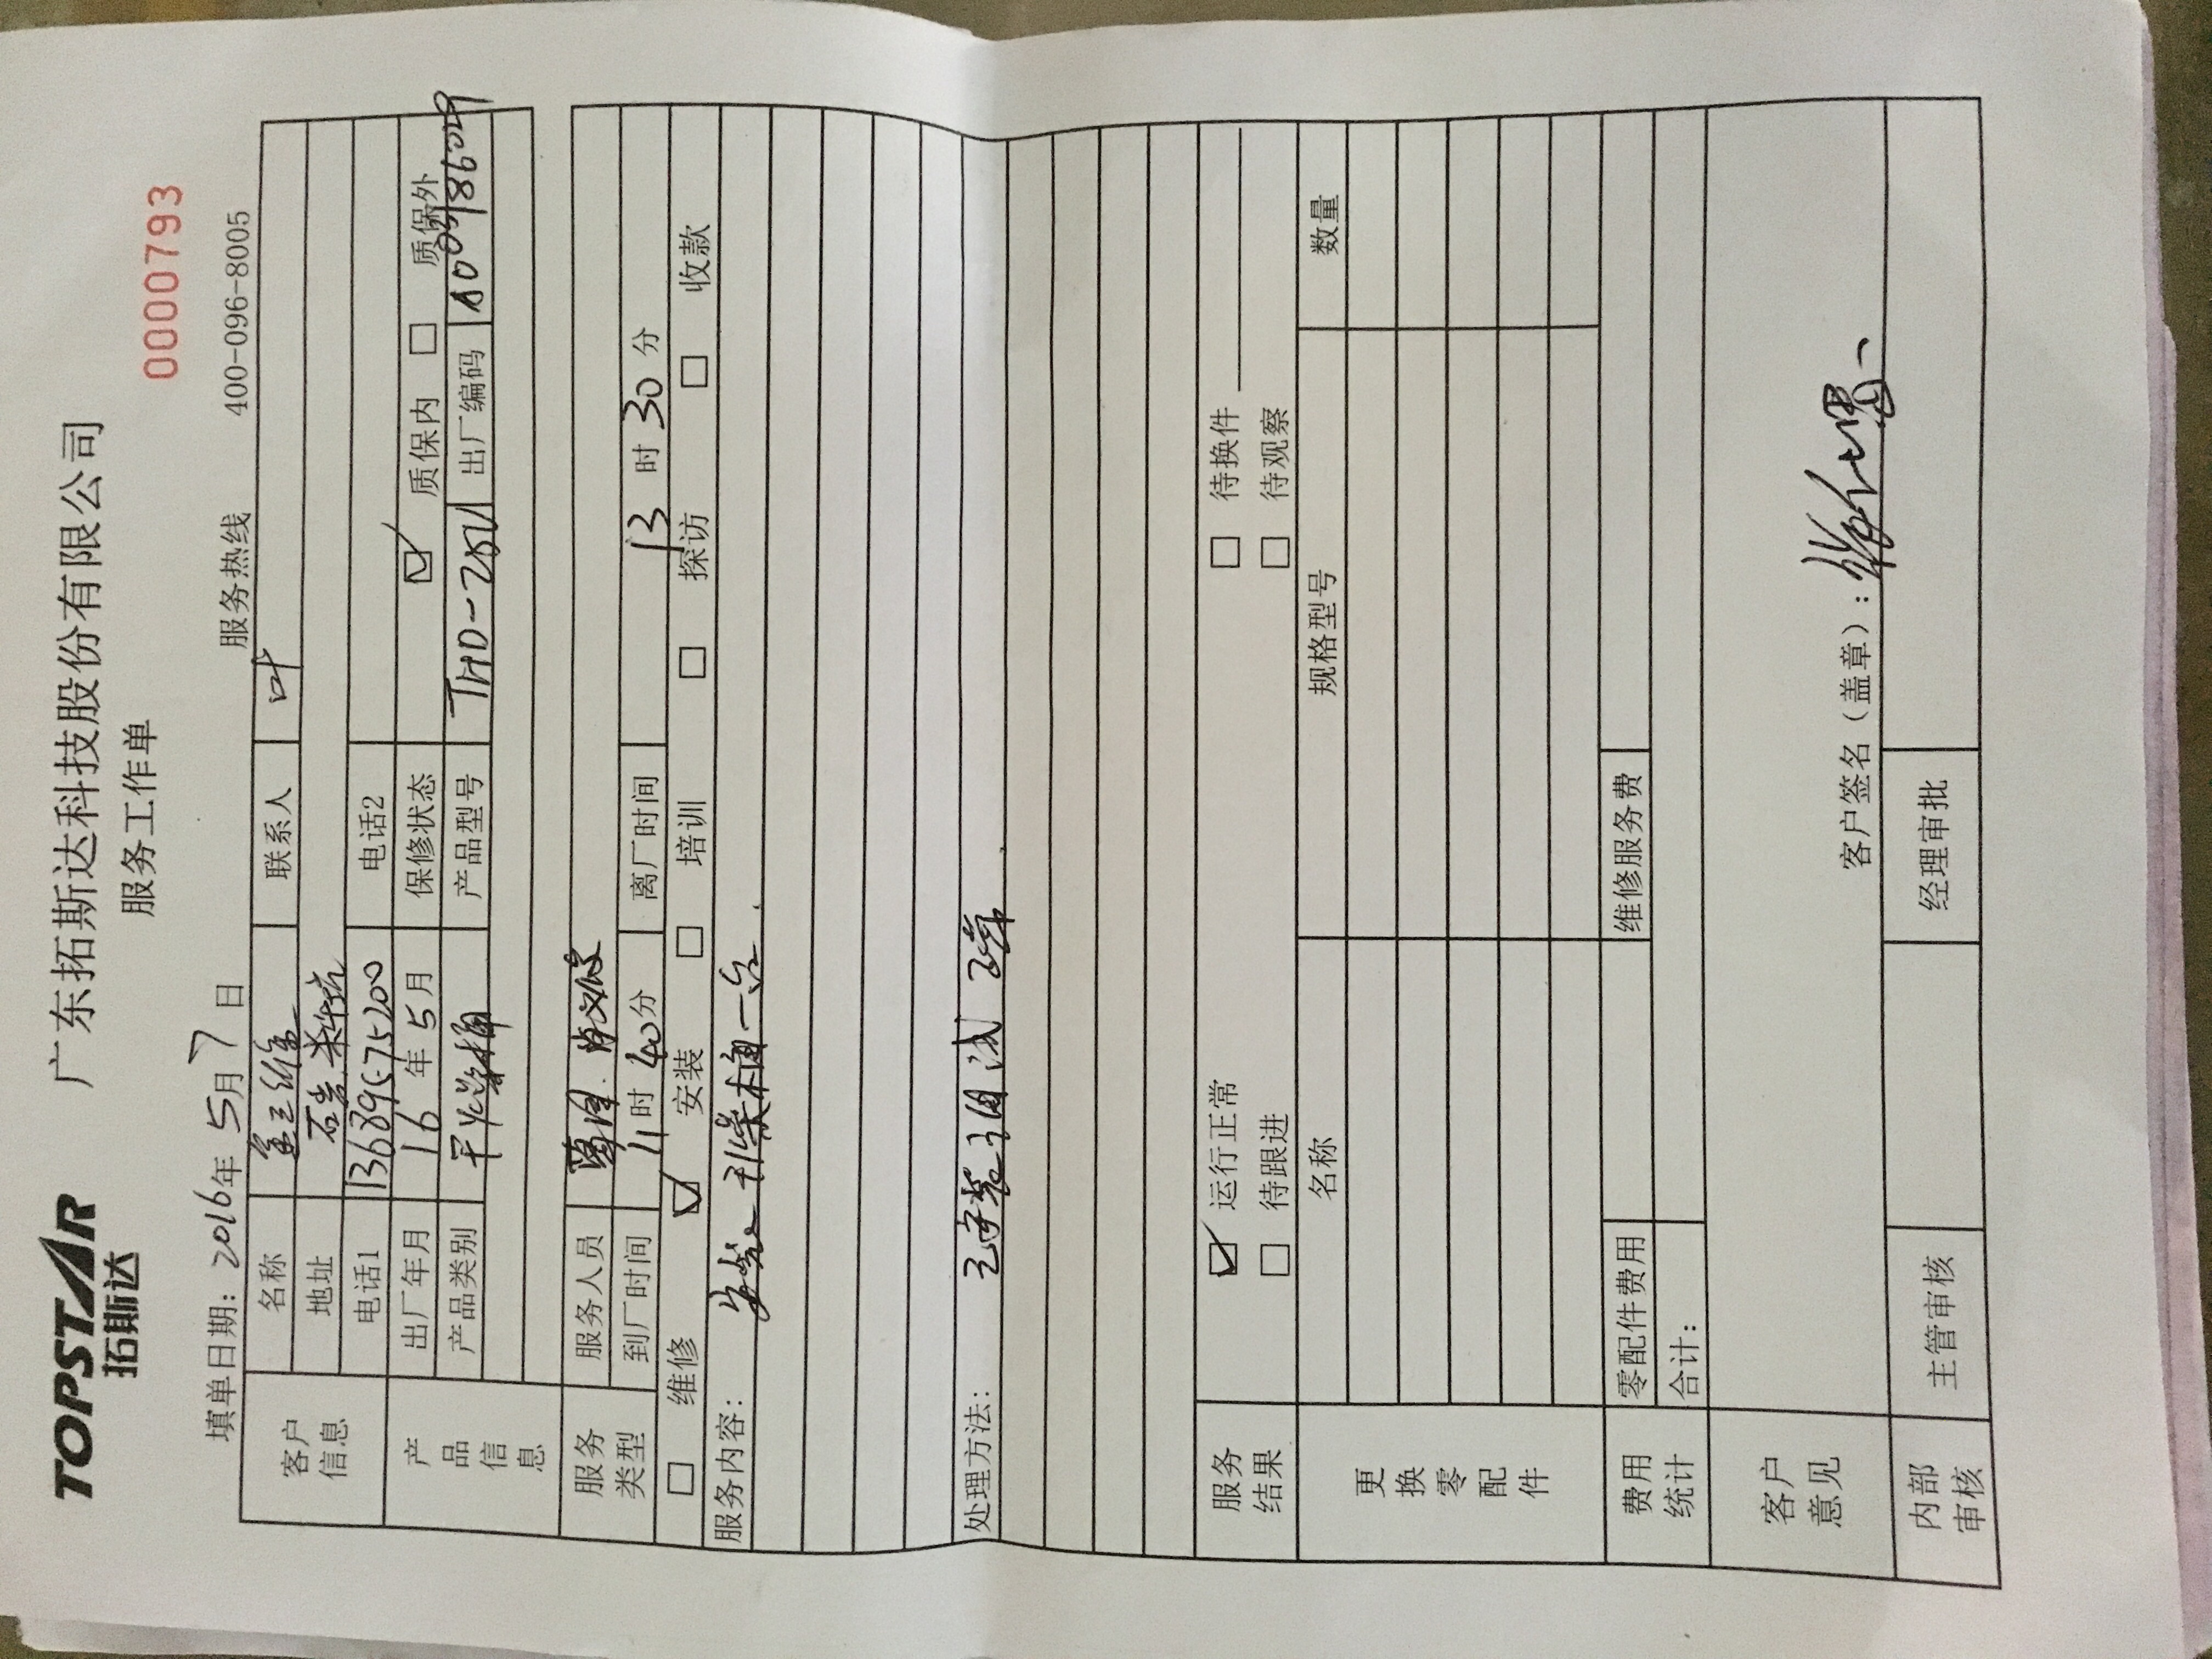 TOPSTAR
拓斯达
广东拓斯达科技股份有限公司
服务工作单
0000793
填单日期: 2016年 5月 7日 服务热线 400-096-8005
客户信息
名称 金三维 联系人 叶
地址 石岩
电话1 电话2
产品信息
出厂年月 16年 5月 保修状态 ☑ 质保内 □ 质保外
产品类别 产品型号 出厂编码
服务类型
服务人员
到厂时间 11时 40分 离厂时间 13时 30分
□ 维修 ☑ 安装 □ 培训 □ 探访 □ 收款
服务内容: 安装 一台.
处理方法: 已安装调试 正常
服务结果
☑ 运行正常 □ 待换件
□ 待跟进 □ 待观察
更换零配件
名称 规格型号 数量
费用统计
零配件费用 维修服务费
合计:
客户意见
客户签名（盖章）:
内部审核
主管审核 经理审批